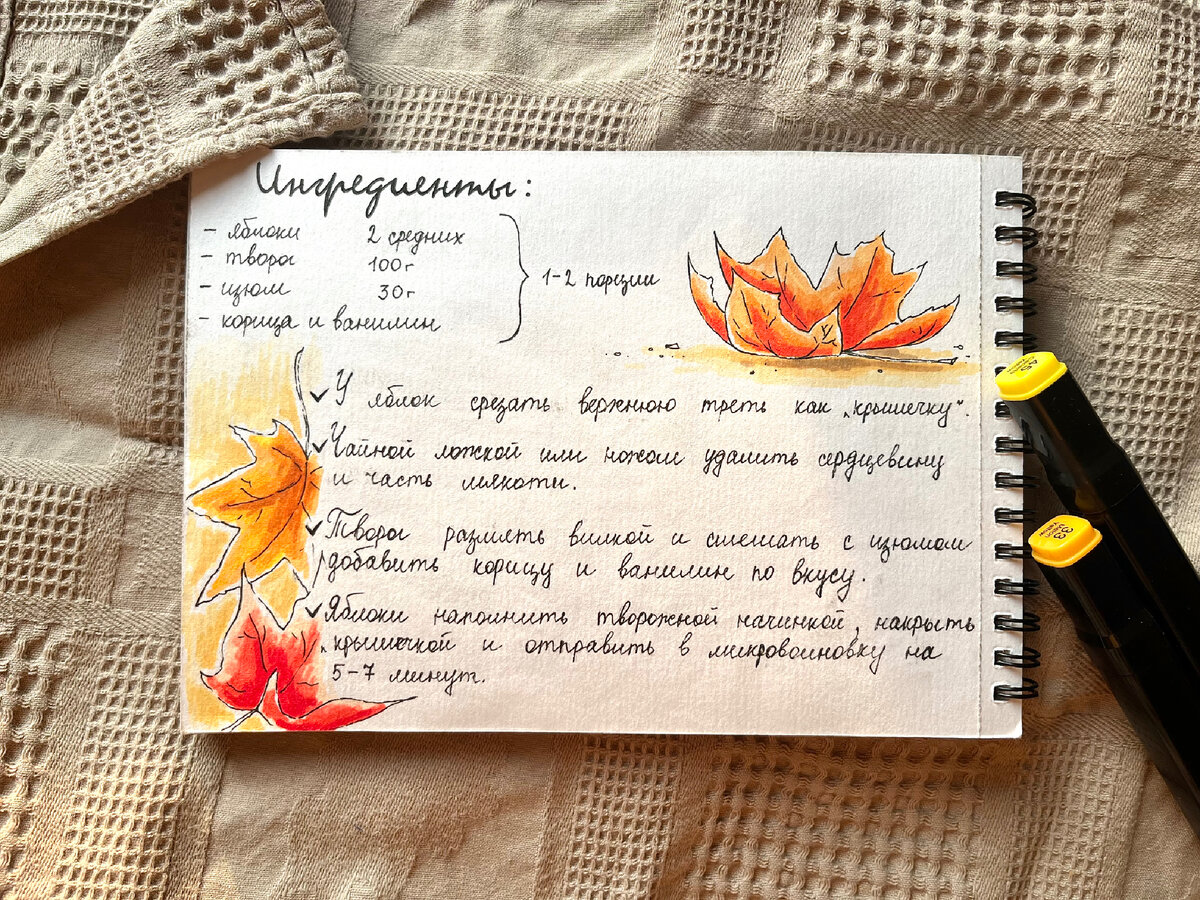 Ингредиенты:
- яблоки 2 средних
- творог 100г
- изюм 30г
- корица и ванилин
1-2 порции
У яблок срезать верхнюю треть как „крышечку“.
Чайной ложкой или ножом удалить сердцевину
и часть мякоти.
Творог размять вилкой и смешать с изюмом
добавить корицу и ванилин по вкусу.
Яблоки наполнить творожной начинкой, накрыть
„крышечкой и отправить в микровоиновку на
5-7 минут.
33